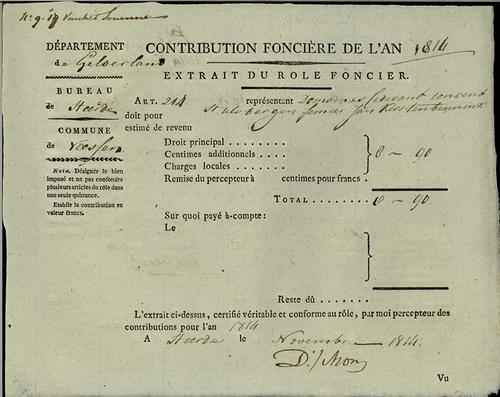 DÉPARTEMENT
de Gelderland
BUREAU
de Heerde
COMMUNE
de Vaassen
Nota. Désigner le bien
imposé et ne pas confondre
plusieurs articles du rôle dans
une seule quitance.
Etablir la contribution en
valeur francs.
CONTRIBUTION FONCIÈRE DE L'AN 1814
EXTRAIT DU ROLE FONCIER.
ART. 214 représentant Domeines convent
doit pour
estimé de revenu
Droit principal . . . . . . . .
Centimes additionnels . . . . 8 - 90
Charges locales . . . . . . .
Remise du percepteur à centimes pour francs.
TOTAL . . . . . . . . 8 - 90.
Sur quoi payé à-compte:
Le
Reste dû . . . . . . .
L'extrait ci-dessus, certifié véritable et conforme au rôle, par moi percepteur des
contributions pour l'an 1814
A Heerde le Novembre 1814.
Vu